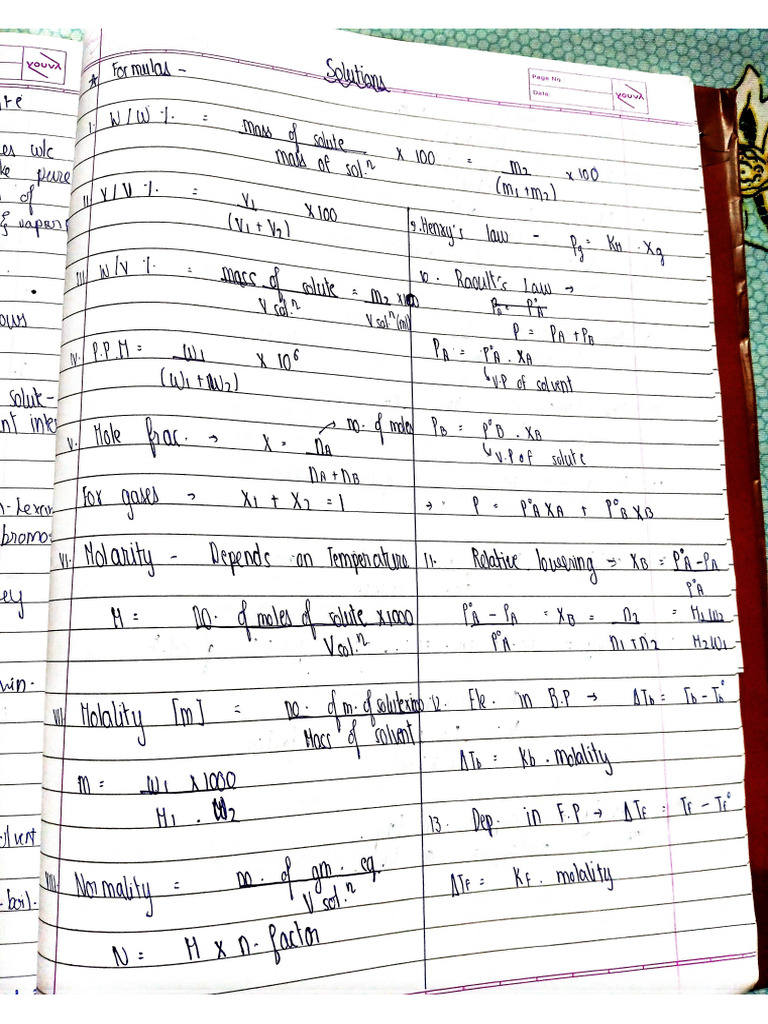 Solutions
* Formulas -
Page No
Date
YOUVA
I. W/W % = mass of solute / mass of sol.ⁿ x 100 = m2 / (m1+m2) x 100
II. V/V % = V1 / (V1 + V2) x100
III. W/V % = mass of solute / V sol.ⁿ = m2 x100 / V solⁿ (ml)
IV. P.P.M = W1 / (W1 + W2) x 10⁶
V. Mole frac. → X = nA / nA + nB → no. of moles
For gases → X1 + X2 = 1
VI. Molarity - Depends on Temperature
M = no. of moles of solute x1000 / V sol.ⁿ
VII. Molality [m] = no. of m. of solute x1000 / Mass of solvent
m = W1 x1000 / M1 . W2
VIII. Normality = no. of gm. eq. / V sol.ⁿ
N = M x n-factor
9. Henry's law - Pg = KH . Xg
10. Raoult's Law →
P = PA + PB
PA = P°A . XA
↳ V.P of solvent
PB = P°B . XB
↳ V.P of solute
→ P = P°A XA + P°B XB
11. Relative lowering → XB = P°A - PA / P°A
P°A - PA / P°A = XB = n2 / n1 + n2 = M1W2 / M2W1
12. Ele. in B.P → ΔTb = Tb - Tb°
ΔTb = Kb . molality
13. Dep. in F.P. → ΔTf = Tf - Tf°
ΔTf = Kf . molality
YOUVA
es w/c
pure
of
& vapor
ows
solute-
nt inte
bromo-
ey
win.
olvent
boil.